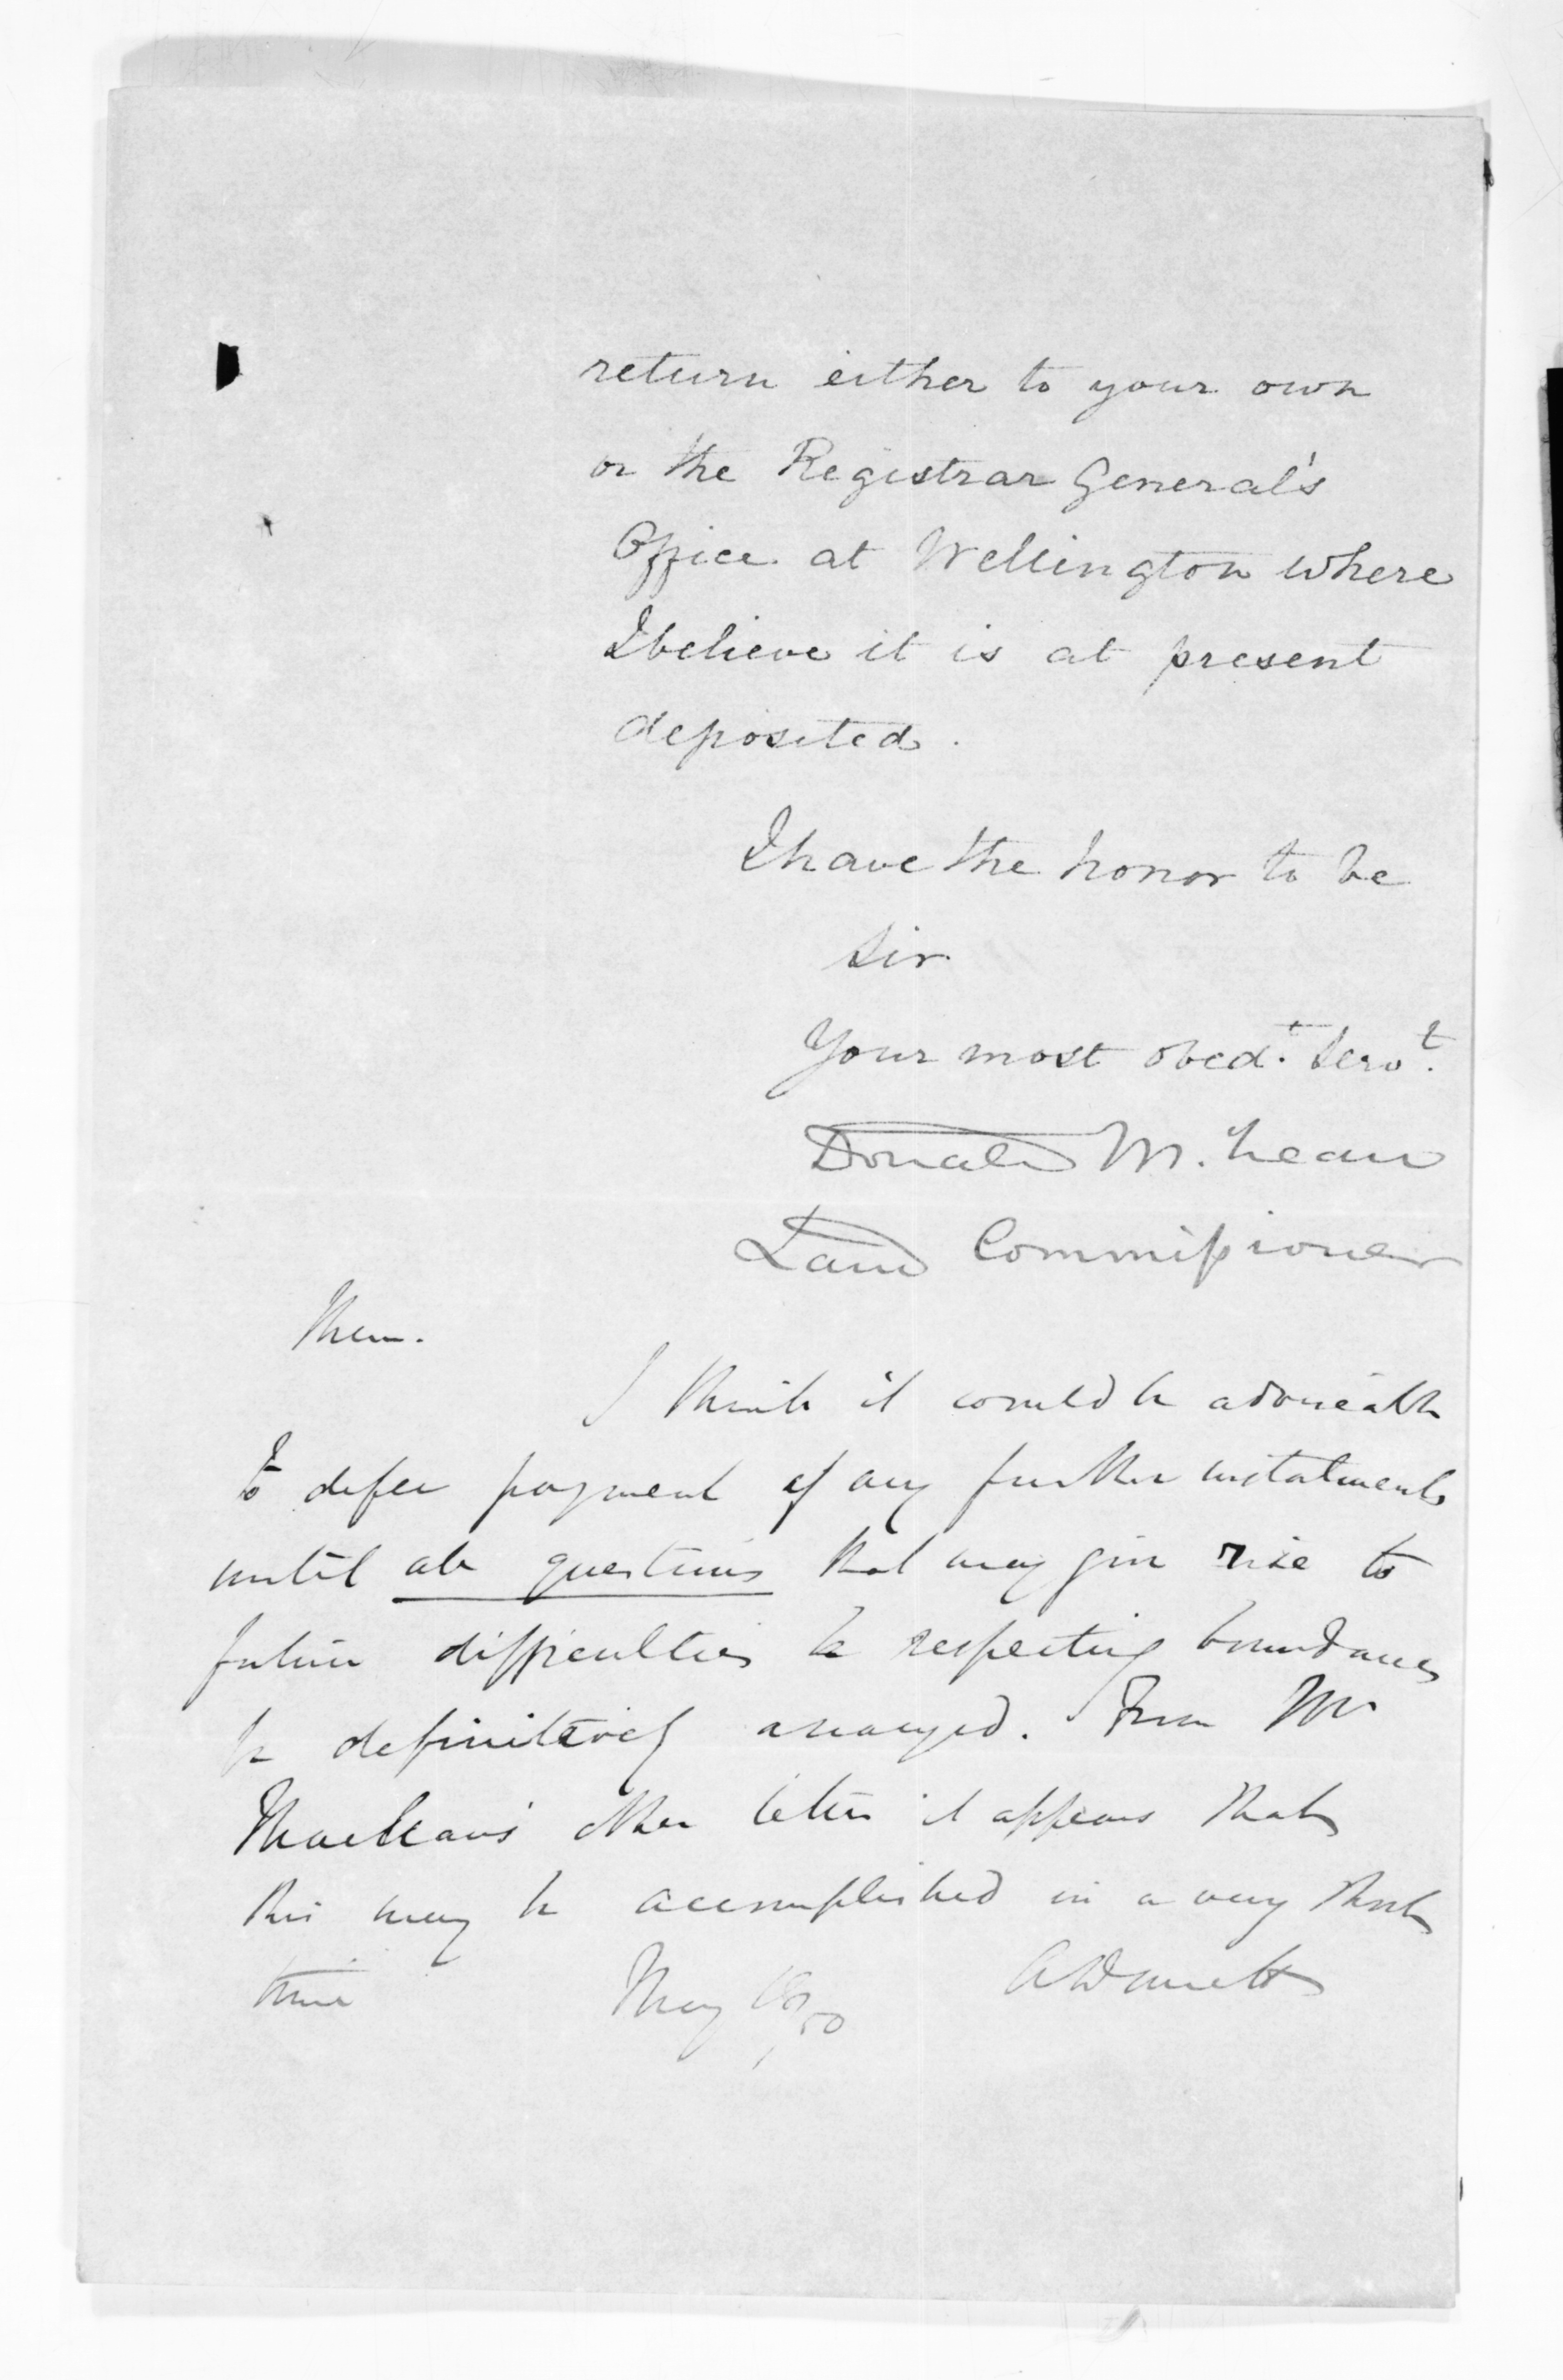 return either to your own
or the Registrar General's
Office at Wellington where
I believe it is at present
deposited.
I have the honor to be
Sir
Your most obedt. Servt.
Donald McLean
Land Commissioner
Mem.
I think it would be advisable
to defer payment of any further instalments
until all questions that may give rise to
future difficulties respecting boundaries
be definitively arranged. From Mr
MacLean's other letter it appears that
this may be accomplished in a very short
time
May /50